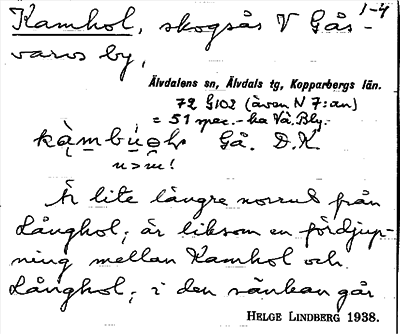 1-4
Kamhol, skogsås V Gås-
varvs by,
Älvdalens sn, Älvdals tg, Kopparbergs län.
72 G102 (även N 7:an)
= 51 spec.-ka Vå. Bly.
Gå. D.K.
n > m!
Är lite längre norrut från
Långhol; är liksom en fördjup-
ning mellan Kamhol och
Långhol; i den sänkan går
HELGE LINDBERG 1938.